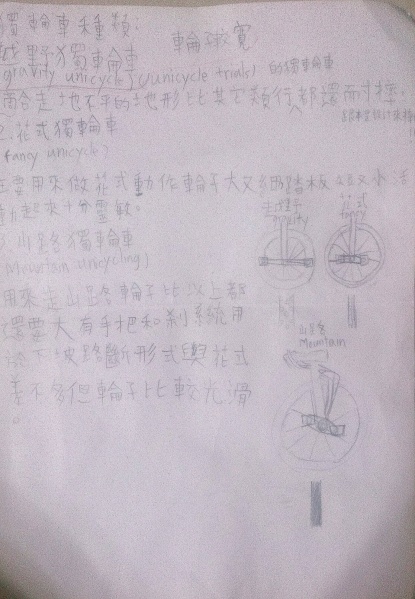 獨輪車種類:
輪球寬
越野獨輪車
(gravity unicycle)(unicycle trials) 的獨輪車
適合走地不平的地形比其它類行都還耐撞。
2.花式獨輪車
(fancy unicycle)
主要用來做花式動作輪子大又細踏板短又小活
動起來十分靈敏。
3.山路獨輪車
(Mountain unicycling)
用來走山路輪子比以上都
還要大有手把和剎系統用
下坡路斷形式與花式
差不多但輪子比較光滑
。
越野
gravity
花式
fancy
山路
Mountain